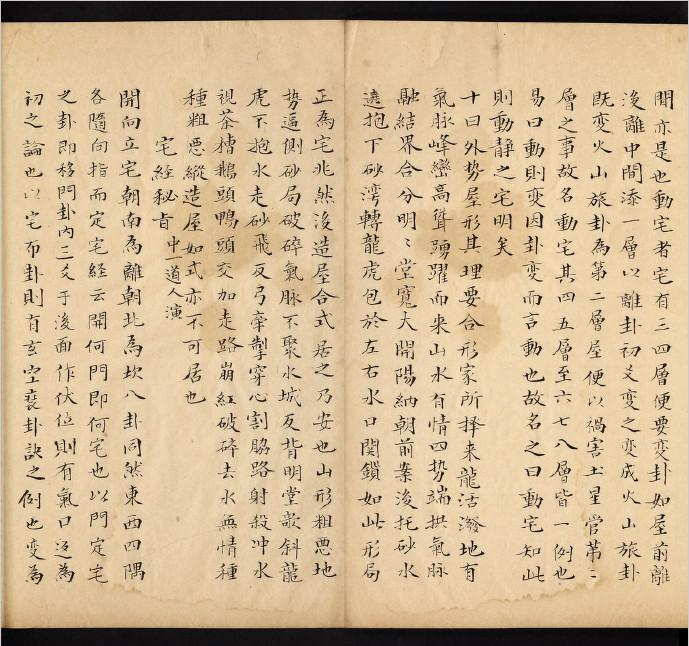 間亦是也動宅者宅有三四層便要变卦如屋前離
後離中間添一層以離卦初爻变之变成火山旅卦
既变火山旅卦為第二層屋便以禍害土星管苐二
層之事故名動宅其四五層至六七八層皆一例也
易曰動則变因卦变而言動也故名之曰動宅知此
則動静之宅明矣
十曰外势屋形其理要合形家所择来龍活潑地有
氣脉峰巒高聳踴躍而来山水有情四势端拱氣脉
融結界合分明〻堂寬大開陽納朝前案後托砂水
遶抱下砂湾轉龍虎包於左右水口関鎖如此形局
正為宅兆然後造屋合式居之乃安也山形粗悪地
势逼側砂局破碎氣脉不聚水城反背明堂欹斜龍
虎下抱水走砂飛反弓牽掣穿心割脇路射殺冲水
視茶槽鵝頭鴨頭交加走路崩紅破碎去水無情種
種粗悪縱造屋如式亦不可居也
宅經秘旨 中一道人演
開向立宅朝南為離朝北為坎八卦同然東西四隅
各隨向指而定宅経云開何門即何宅也以門定宅
之卦即移門卦内三爻于後面作伏位則有氣口迎為
初之論也以宅布卦則有玄空裝卦訣之例也变為